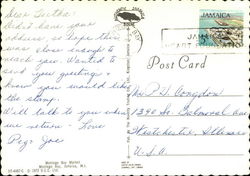 dear Bertha,
didn't have your
address so hope this
was close enough to
reach you. Wanted to
send you greetings &
knew you would like
the stamp.
Will talk to you when
we return - Love
Peg & Joe
Montego Bay Market
Montego Bay, Jamaica, W.I.
JAMAICA
JAMAICA
Post Card
Mrs P. H. Congdon
1340 So.
Westchester, Illinois
U.S.A.